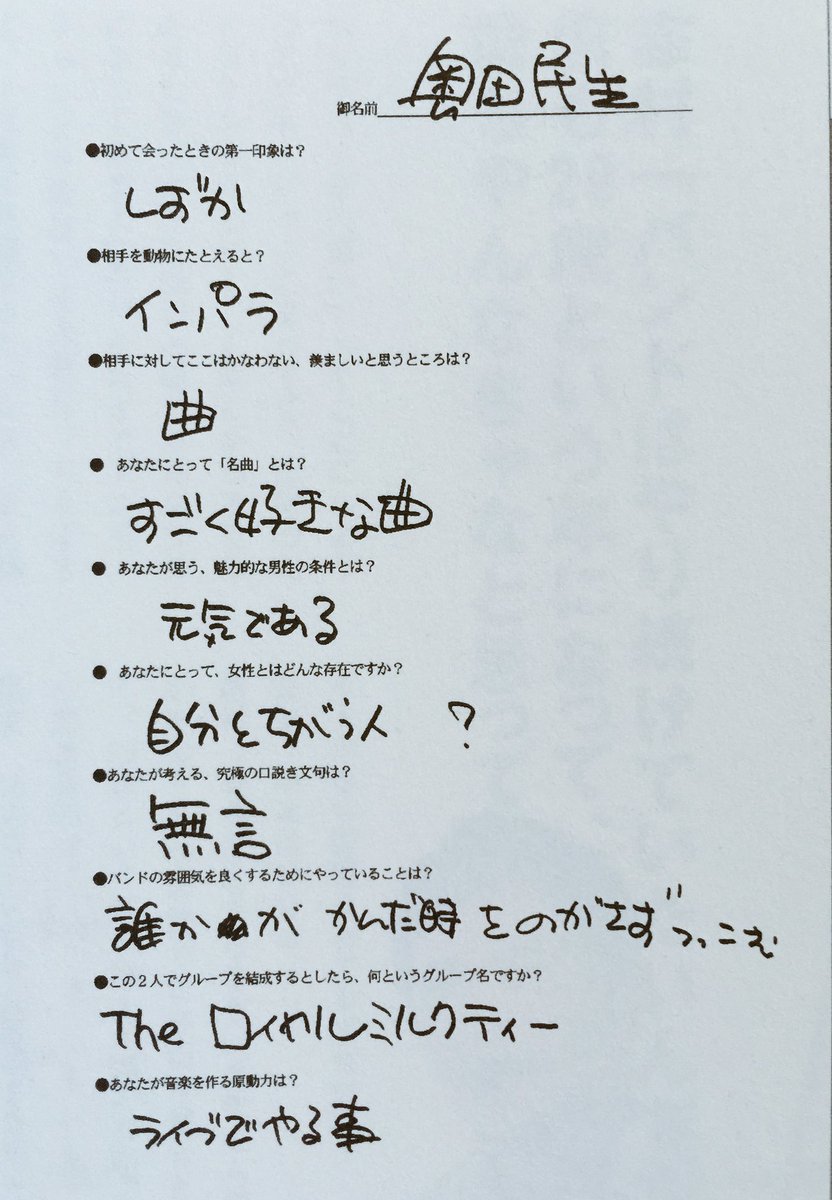 御名前 奥田民生
●初めて会ったときの第一印象は？
しずか
●相手を動物にたとえると？
インパラ
●相手に対してここはかなわない、羨ましいと思うところは？
曲
● あなたにとって「名曲」とは？
すごく好きな曲
● あなたが思う、魅力的な男性の条件とは？
元気である
● あなたにとって、女性とはどんな存在ですか？
自分とちがう人 ？
●あなたが考える、究極の口説き文句は？
無言
●バンドの雰囲気を良くするためにやっていることは？
誰かが かんだ時をのがさずつっこむ
●この２人でグループを結成するとしたら、何というグループ名ですか？
The ロイヤルミルクティー
●あなたが音楽を作る原動力は？
ライブでやる事